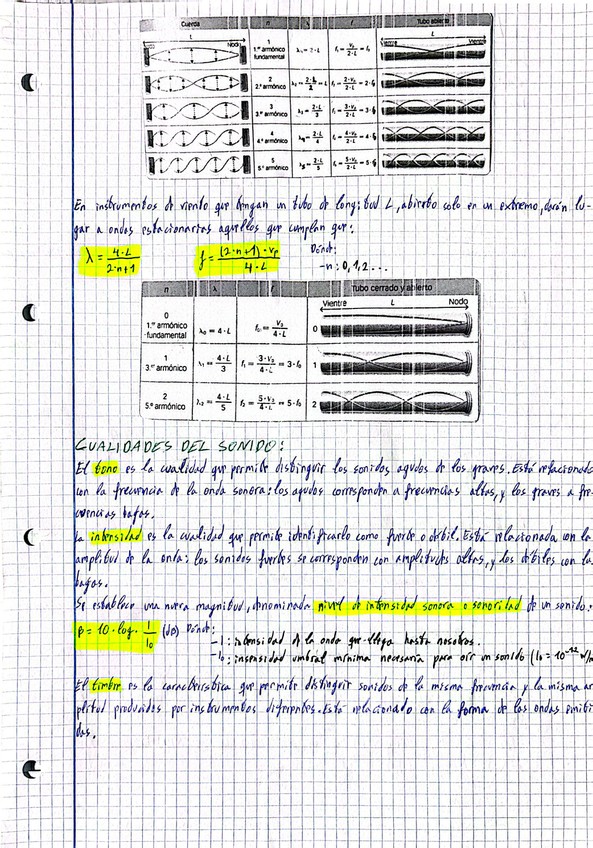 Cuerda n λ f Tubo abierto
L L
Nodo Vientre Vientre
1 1.er armónico fundamental λ₁ = 2·L f₁ = v₀/2·L = f₀
2 2.º armónico λ₂ = 2·L/2 = L f₂ = 2·v₀/2·L = 2·f₀
3 3.er armónico λ₃ = 2·L/3 f₃ = 3·v₀/2·L = 3·f₀
4 4.º armónico λ₄ = 2·L/4 f₄ = 4·v₀/2·L = 4·f₀
5 5.º armónico λ₅ = 2·L/5 f₅ = 5·v₀/2·L = 5·f₀
En instrumentos de viento que tengan un tubo de longitud L, abierto solo en un extremo, darán lu-
gar a ondas estacionarias aquellos que cumplan que:
λ = 4·L/2·n+1 f = (2·n+1)·vₚ/4·L Donde:
-n: 0,1,2...
n λ f Tubo cerrado y abierto
Vientre L Nodo
0 1.er armónico fundamental λ₀ = 4·L f₀ = v₀/4·L 0
1 3.er armónico λ₁ = 4·L/3 f₁ = 3·v₀/4·L = 3·f₀ 1
2 5.º armónico λ₂ = 4·L/5 f₂ = 5·v₀/4·L = 5·f₀ 2
CUALIDADES DEL SONIDO:
El tono es la cualidad que permite distinguir los sonidos agudos de los graves. Está relacionado
con la frecuencia de la onda sonora: los agudos corresponden a frecuencias altas, y los graves a fre-
cuencias bajas.
La intensidad es la cualidad que permite identificarlo como fuerte o débil. Está relacionada con la
amplitud de la onda: los sonidos fuertes se corresponden con amplitudes altas, y los débiles con la
bajas.
Se establece una nueva magnitud, denominada nivel de intensidad sonora o sonoridad de un sonido:
β = 10·log· I/I₀ (dB) Donde:
-I: intensidad de la onda que llega hasta nosotros.
-I₀: insensidad umbral mínima necesaria para oir un sonido (I₀ = 10⁻¹² w/m
El timbre es la característica que permite distinguir sonidos de la misma frecuencia y la misma am
plitud producidos por instrumentos diferentes. Está relacionado con la forma de las ondas emiti
das.